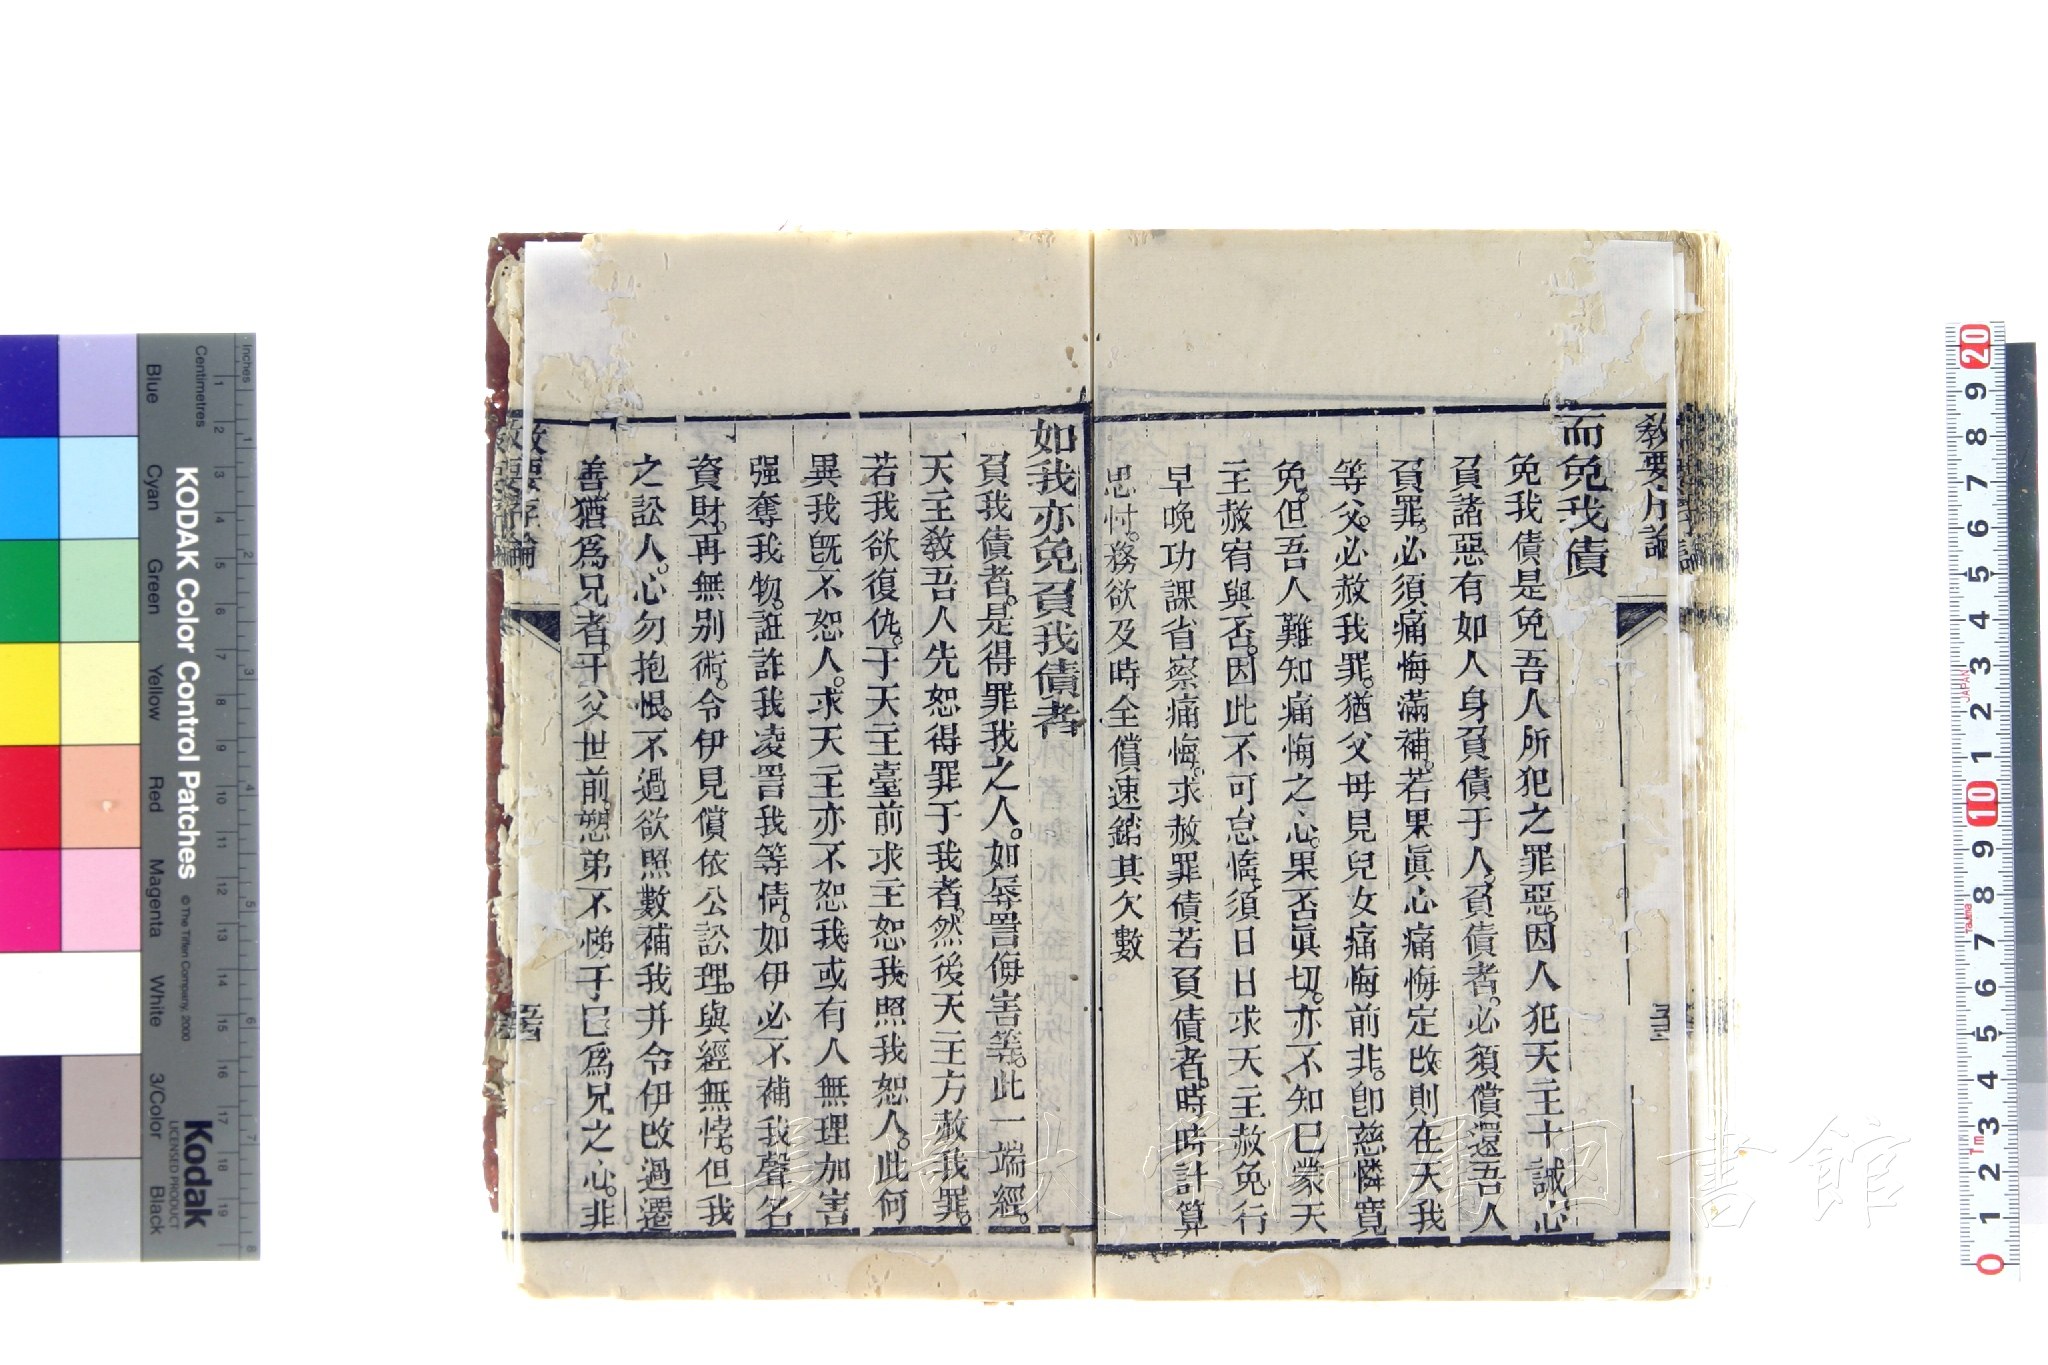 教要序論
而免我債
免我債是免吾人所犯之罪惡。因人犯天主十誡心
負諸惡有如人身負債于人。負債者。必須償還吾人
負罪。必須痛悔滿補。若果眞心痛悔定改。則在天我
等父。必赦我罪。猶父母見兒女痛悔前非。卽慈憐寬
免。但吾人難知痛悔之心。果否眞切。亦不知已蒙天
主赦宥與否。因此不可怠惰。須日日求天主赦免行
早晚功課省察痛悔。求赦罪債若負債者。時時計算
思忖。務欲及時全償速銷其欠數
如我亦免負我債者
負我債者。是得罪我之人。如辱詈侮害等。此一端經。
天主敎吾人先恕得罪于我者。然後天主方赦我罪。
若我欲復仇。于天主臺前求主恕我。照我恕人。此何
異我旣不恕人。求天主亦不恕我。或有人無理加害
强奪我物。誑詐我凌詈我等情。如伊必不補我聲名
資財。再無別術。令伊見償依公訟理。與經無悖。但我
之訟人。心勿抱恨。不過欲照數補我并令伊改過遷
善猶爲兄者。于父世前。愬弟不悌于已爲兄之心。非
教要序論
KODAK Color Control Patches
© The Tiffen Company, 2000
Kodak
LICENSED PRODUCT
Inches
Centimetres
Blue Cyan Green Yellow Red Magenta White 3/Color Black
長崎大学附属図書館